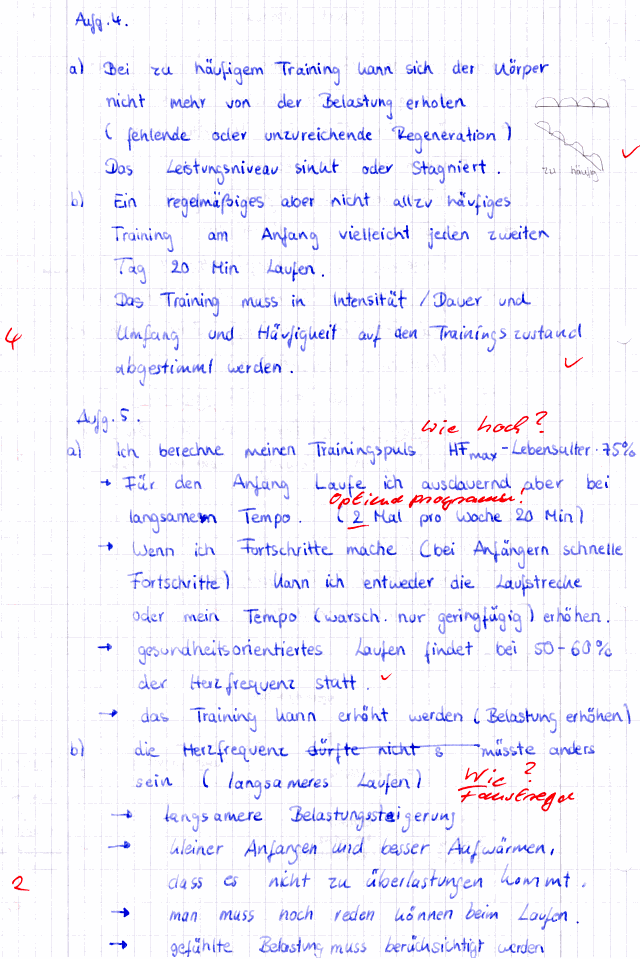 Aufg. 4.
a) Bei zu häufigem Training kann sich der Körper
nicht mehr von der Belastung erholen
( fehlende oder unzureichende Regeneration )
Das Leistungsniveau sinkt oder Stagniert.
zu häufig
b) Ein regelmäßiges aber nicht allzu häufiges
Training am Anfang vielleicht jeden zweiten
Tag 20 Min Laufen.
Das Training muss in Intensität / Dauer und
4 Umfang und Häufigkeit auf den Trainingszustand
abgestimmt werden.
Aufg. 5.
Wie hoch?
a) Ich berechne meinen Trainingspuls HFmax - Lebensalter · 75%
→ Für den Anfang Laufe ich ausdauernd aber bei
Optimalprogramm!
langsamem Tempo. ( 2 Mal pro Woche 20 Min )
→ Wenn ich Fortschritte mache ( bei Anfängern schnelle
Fortschritte ) kann ich entweder die Laufstrecke
oder mein Tempo ( warsch. nur geringfügig ) erhöhen.
→ gesundheitsorientiertes Laufen findet bei 50-60%
der Herzfrequenz statt.
→ das Training kann erhöht werden ( Belastung erhöhen )
b) die Herzfrequenz dürfte nicht s müsste anders
sein ( langsameres Laufen ) Wie?
Faustregel
→ langsamere Belastungssteigerung
→ kleiner Anfangen und besser Aufwärmen,
2 dass es nicht zu überlastungen kommt.
→ man muss noch reden können beim Laufen.
→ gefühlte Belastung muss berücksichtigt werden